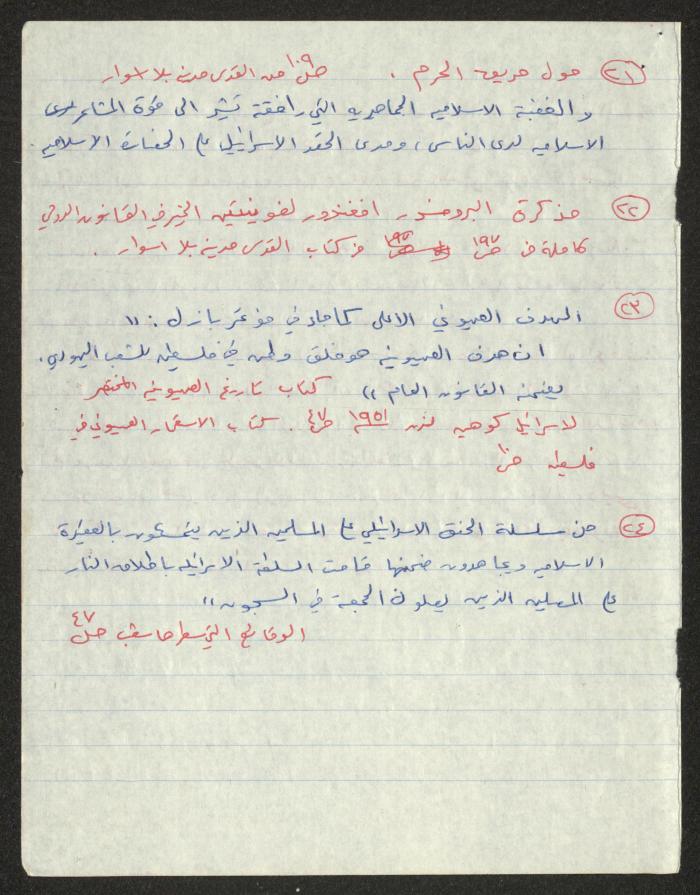 (٢١) حول حريق الحرم . ص١٠٩ من القدس مدينة بلا اسوار
والغضبة الاسلاميه الجماهيريه التي رافقته تشير الى قوة المشاعر
الاسلاميه لدى الناس، ومدى الحقد الاسرائيلي على الحضارة الاسلاميه.
(٢٢) مذكرة البروفسور لفونتين الخبير في القانون الدولي
كاملة من ص١٩٧ من كتاب القدس مدينه بلا اسوار .
(٢٣) الهدف الصهيوني الاعلى كما جاء في مؤتمر بازل : "
ان هدف الصهيونيه هو خلق وطن في فلسطين للشعب اليهودي،
يضمنه القانون العام " كتاب تاريخ الصهيونيه المختصر
لاسرائيل كوهين لندن ١٩٥١ ص٤٧ . كتاب الاستعمار الصهيوني في
فلسطين ص١٠
(٢٤) من سلسلة الحنق الاسرائيلي على المسلمين الذين يتمسكون بالعقيدة
الاسلاميه ويجاهدون ضمنها قامت السلطة الاسرائيليه باطلاق النار
على المصلين الذين يصلون الجمعة في السجون "
الوقائع التي سطرها شقب ص٤٧